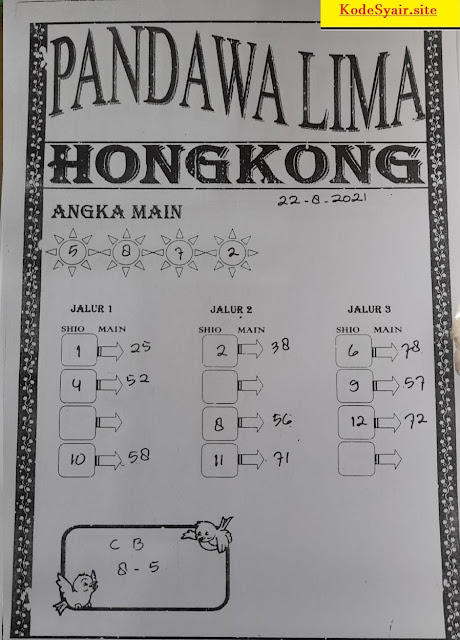 KodeSyair.site
PANDAWA LIMA
HONGKONG
22-8-2021
ANGKA MAIN
5 8 7 2
JALUR 1 JALUR 2 JALUR 3
SHIO MAIN SHIO MAIN SHIO MAIN
1 25 2 38 6 78
4 52 9 57
8 56 12 72
10 58 11 71
C B
8 - 5